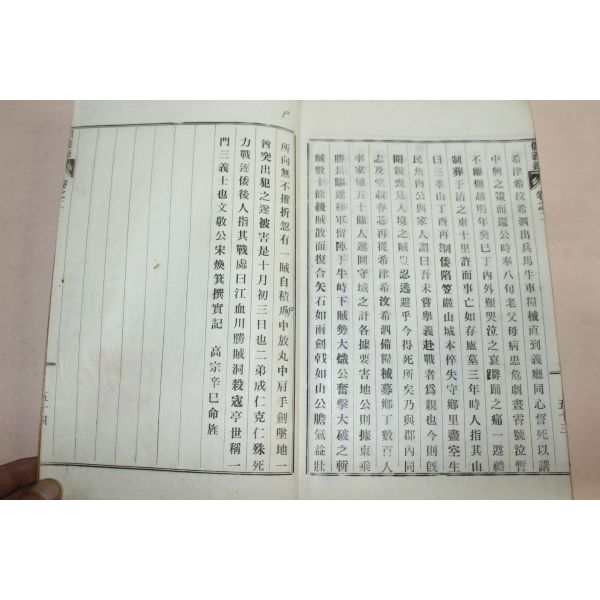 希津希汶希泗出兵馬牛車糧械直到義廳同心誓死以講
中興之策而還公時奉八旬老父母病患危劇晝宵號泣暫
不離側越明年癸巳丁內外艱哭泣之哀躃踊之痛一遵禮
制葬于治之東十里許而事亡如存廬墓三年時人指其山
曰三孝山丁酉再朔倭陷笠巖山城本倅失守鄉里盡空生
民魚肉公與家人謂曰吾未嘗擧義赴戰者爲親也今則旣
闋親喪見入境之賊豈忍逃避乎今得死所矣乃與郡內同
志及堂叔春苾再從希津希汶希泗備糧械募鄉丁數百人
率家僮五十餘人遂圖守城之計各據要害地公則據東乘
勝長驅遂移軍留陣于牛峙下賊勢大熾公奮擊大破之斬
賊數十餘級賊散而復合矢石如雨劍戟如山公膽氣益壯
五十三
所向無不摧折忽有一賊自積屍中放丸中肩手劍墜地一
酋突出犯之遂被害是十月初三日也二弟成仁克仁殊死
力戰逐倭後人指其戰處曰江血川勝賊洞殺寇亭世稱一
門三義士也文敬公宋煥箕撰實記 高宗辛巳命旌
五十四